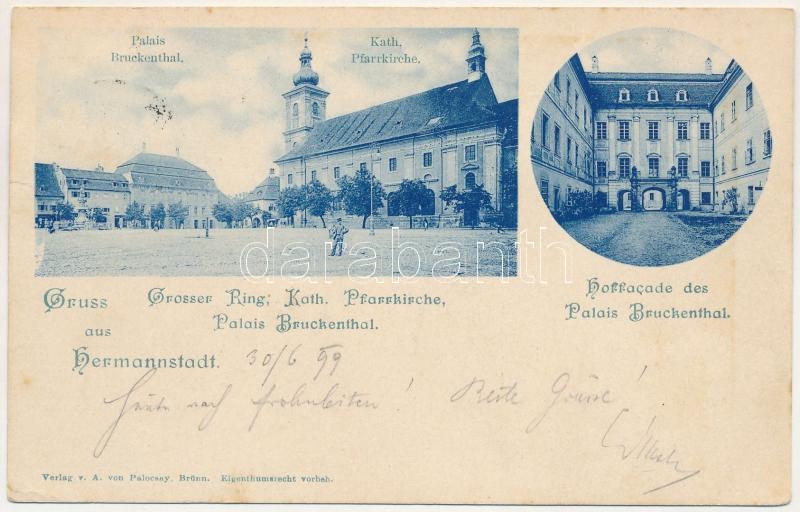 Palais
Bruckenthal.
Kath.
Pfarrkirche.
Gruss
aus
Hermannstadt.
Grosser Ring, Kath. Pfarrkirche,
Palais Bruckenthal.
Hoffaçade des
Palais Bruckenthal.
30/6 99
Heute nach! Beste Grüsse!
databanth
Verlag v. A. von Palocsay, Brünn. Eigenthumsrecht vorbeh.